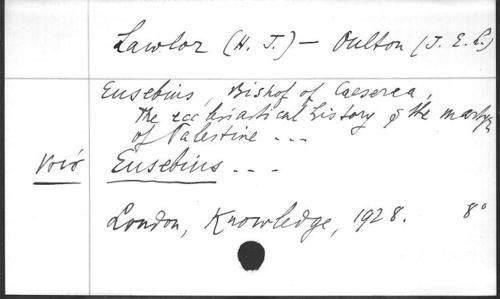 Lawlor (H. J.) — Oulton (J. E. L.)
Eusebius, Bishop of Caeserea,
The ecclesiastical history & the martyrs
of Palestine ---
Voir Eusebius ---
London, Knowledge, 1928. 8°